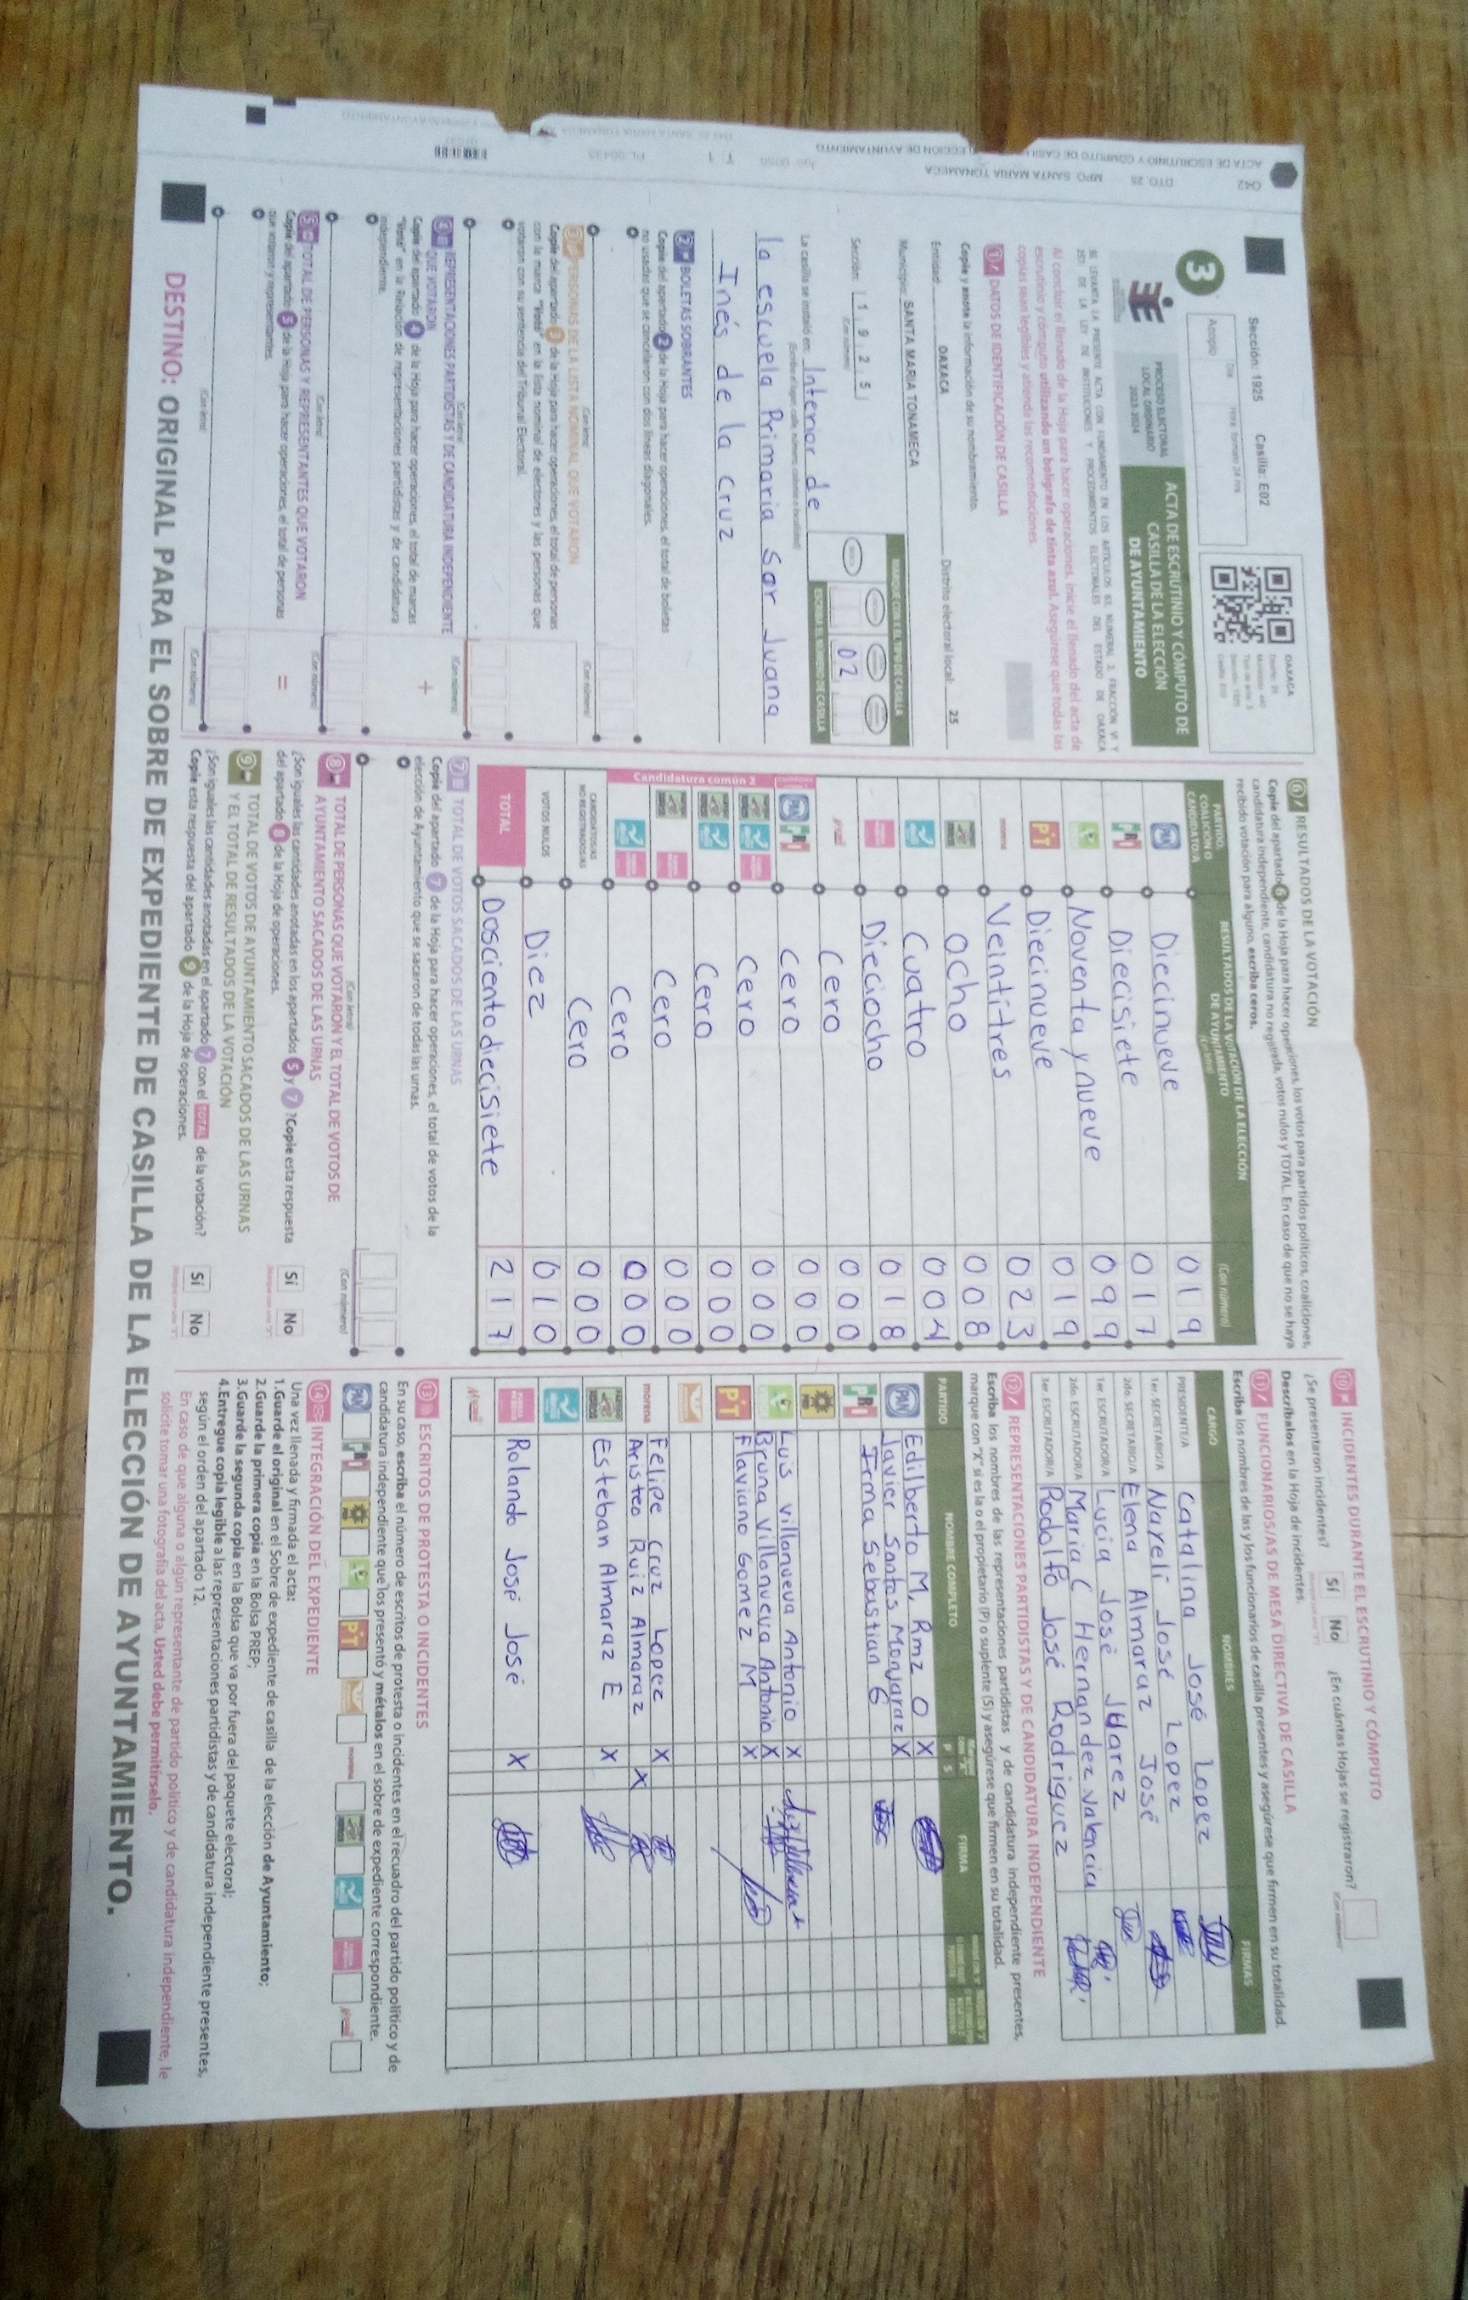 Sección: 1925 Casilla: E02
OAXACA
3
PROCESO ELECTORAL
LOCAL ORDINARIO
2023-2024
ACTA DE ESCRUTINIO Y CÓMPUTO DE
CASILLA DE LA ELECCIÓN
DE AYUNTAMIENTO
Al concluir el llenado de la Hoja para hacer operaciones, inicie el llenado del acta de
escrutinio y cómputo utilizando un bolígrafo de tinta azul. Asegúrese que todas las
copias sean legibles y atienda las recomendaciones.
1 DATOS DE IDENTIFICACIÓN DE CASILLA
Copie y anote la información de su nombramiento.
Entidad: OAXACA Distrito electoral local: 25
Municipio: SANTA MARIA TONAMECA
Sección: 1 9 2 5
MARQUE CON X EL TIPO DE CASILLA
ESCRIBA EL NÚMERO DE CASILLA
02
La casilla se instaló en: Interior de
la escuela Primaria Sor Juana
Inés de la Cruz
2 BOLETAS SOBRANTES
Copie del apartado 2 de la Hoja para hacer operaciones, el total de boletas
no usadas que se cancelaron con dos líneas diagonales.
3 PERSONAS DE LA LISTA NOMINAL QUE VOTARON
Copie del apartado 3 de la Hoja para hacer operaciones, el total de personas
con la marca "Votó" en la lista nominal de electores y las personas que
votaron con su sentencia del Tribunal Electoral.
4 REPRESENTACIONES PARTIDISTAS Y DE CANDIDATURA INDEPENDIENTE
QUE VOTARON
Copie del apartado 4 de la Hoja para hacer operaciones, el total de marcas
"Votó" en la Relación de representaciones partidistas y de candidatura
independiente.
5 TOTAL DE PERSONAS Y REPRESENTANTES QUE VOTARON
Copie del apartado 5 de la Hoja para hacer operaciones, el total de personas
que votaron y representantes.
6 RESULTADOS DE LA VOTACIÓN
Copie del apartado 6 de la Hoja para hacer operaciones, los votos para partidos políticos, coaliciones,
candidatura independiente, candidatura no registrada, votos nulos y TOTAL. En caso de que no se haya
recibido votación para alguno, escriba ceros.
PARTIDO, COALICIÓN O CANDIDATO/A
RESULTADOS DE LA VOTACIÓN DE LA ELECCIÓN DE AYUNTAMIENTO
(Con número)
PAN Diecinueve 019
PRI Diecisiete 017
Noventa y nueve 099
PT Diecinueve 019
Veintitres 023
Ocho 008
Cuatro 004
Dieciocho 018
Cero 000
PAN PRI Cero 000
Candidatura común 2
Cero 000
Cero 000
Cero 000
Cero 000
CANDIDATOS/AS NO REGISTRADOS/AS Cero 000
VOTOS NULOS Diez 010
TOTAL Dosciento diecisiete 217
7 TOTAL DE VOTOS SACADOS DE LAS URNAS
Copie del apartado 7 de la Hoja para hacer operaciones, el total de votos de la
elección de Ayuntamiento que se sacaron de todas las urnas.
8 TOTAL DE PERSONAS QUE VOTARON Y EL TOTAL DE VOTOS DE
AYUNTAMIENTO SACADOS DE LAS URNAS
¿Son iguales las cantidades anotadas en los apartados 5 y 7 ? Copie esta respuesta
del apartado 8 de la Hoja de operaciones. Sí No
9 TOTAL DE VOTOS DE AYUNTAMIENTO SACADOS DE LAS URNAS
Y EL TOTAL DE RESULTADOS DE LA VOTACIÓN
¿Son iguales las cantidades anotadas en el apartado 7 con el TOTAL de la votación?
Copie esta respuesta del apartado 9 de la Hoja de operaciones. Sí No
10 INCIDENTES DURANTE EL ESCRUTINIO Y CÓMPUTO
¿Se presentaron incidentes? Sí No ¿En cuántas Hojas se registraron?
Descríbalos en la Hoja de incidentes.
11 FUNCIONARIOS/AS DE MESA DIRECTIVA DE CASILLA
Escriba los nombres de las y los funcionarios de casilla presentes y asegúrese que firmen en su totalidad.
CARGO NOMBRES FIRMAS
PRESIDENTE/A Catalina José Lopez
1er. SECRETARIO/A Nayeli José Lopez
2do. SECRETARIO/A Elena Almaraz José
1er. ESCRUTADOR/A Lucia José Juarez
2do. ESCRUTADOR/A Maria C Hernandez Valencia
3er. ESCRUTADOR/A Rodolfo José Rodriguez
12 REPRESENTACIONES PARTIDISTAS Y DE CANDIDATURA INDEPENDIENTE
Escriba los nombres de las representaciones partidistas y de candidatura independiente presentes,
marque con "X" si es la o el propietario (P) o suplente (S) y asegúrese que firmen en su totalidad.
PARTIDO NOMBRE COMPLETO P S FIRMA
PAN Edilberto M. Rmz O X
Javier Santos Monjaraz X
PRI Irma Sebastian G
Luis Villanueva Antonio X
Bruna Villanueva Antonio X
PT Flaviano Gomez M X
Felipe Cruz Lopez X
morena Aristeo Ruiz Almaraz X
Esteban Almaraz E X
Rolando José José X
13 ESCRITOS DE PROTESTA O INCIDENTES
En su caso, escriba el número de escritos de protesta o incidentes en el recuadro del partido político y de
candidatura independiente que los presentó y métalos en el sobre de expediente correspondiente.
PAN PRI PT morena
14 INTEGRACIÓN DEL EXPEDIENTE
Una vez llenada y firmada el acta:
1. Guarde el original en el Sobre de expediente de casilla de la elección de Ayuntamiento;
2. Guarde la primera copia en la Bolsa PREP;
3. Guarde la segunda copia en la Bolsa que va por fuera del paquete electoral;
4. Entregue copia legible a las representaciones partidistas y de candidatura independiente presentes,
según el orden del apartado 12.
En caso de que alguna o algún representante de partido político y de candidatura independiente, le
solicite tomar una fotografía del acta, Usted debe permitírselo.
DESTINO: ORIGINAL PARA EL SOBRE DE EXPEDIENTE DE CASILLA DE LA ELECCIÓN DE AYUNTAMIENTO.